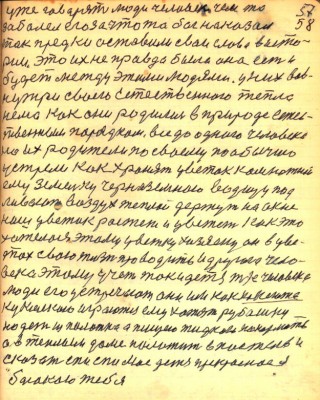 57
58
уже говорят люди человек чем то
заболел его за что то бог наказал
так предки оставили свои слова в исто-
рии это их не правда была она есть и
будет между этими людями. у них вов-
нутри своего естественного тепла
нема как они родились в природе есте-
ственным порядком все до одного человека
но их родители по своему по обычаю
устрели как хранят цветок комнатный
ему землицу черноземного водицу под
ливают воздух теплый держут на окне
ногу цветок растет и цветет как это
хотелось этому цветку хозяену он в цве-
тах свою жизню водить и другого чело-
века этому учет так и дети тже человека
люди его устречают они им как
куклаю играются ему хотят рубашку
надеть и пелёнка а пищею жидкою накормить
а в теплым доме положить в постель и
сказать спи спи мое детя прекрасное я
благаю тебя